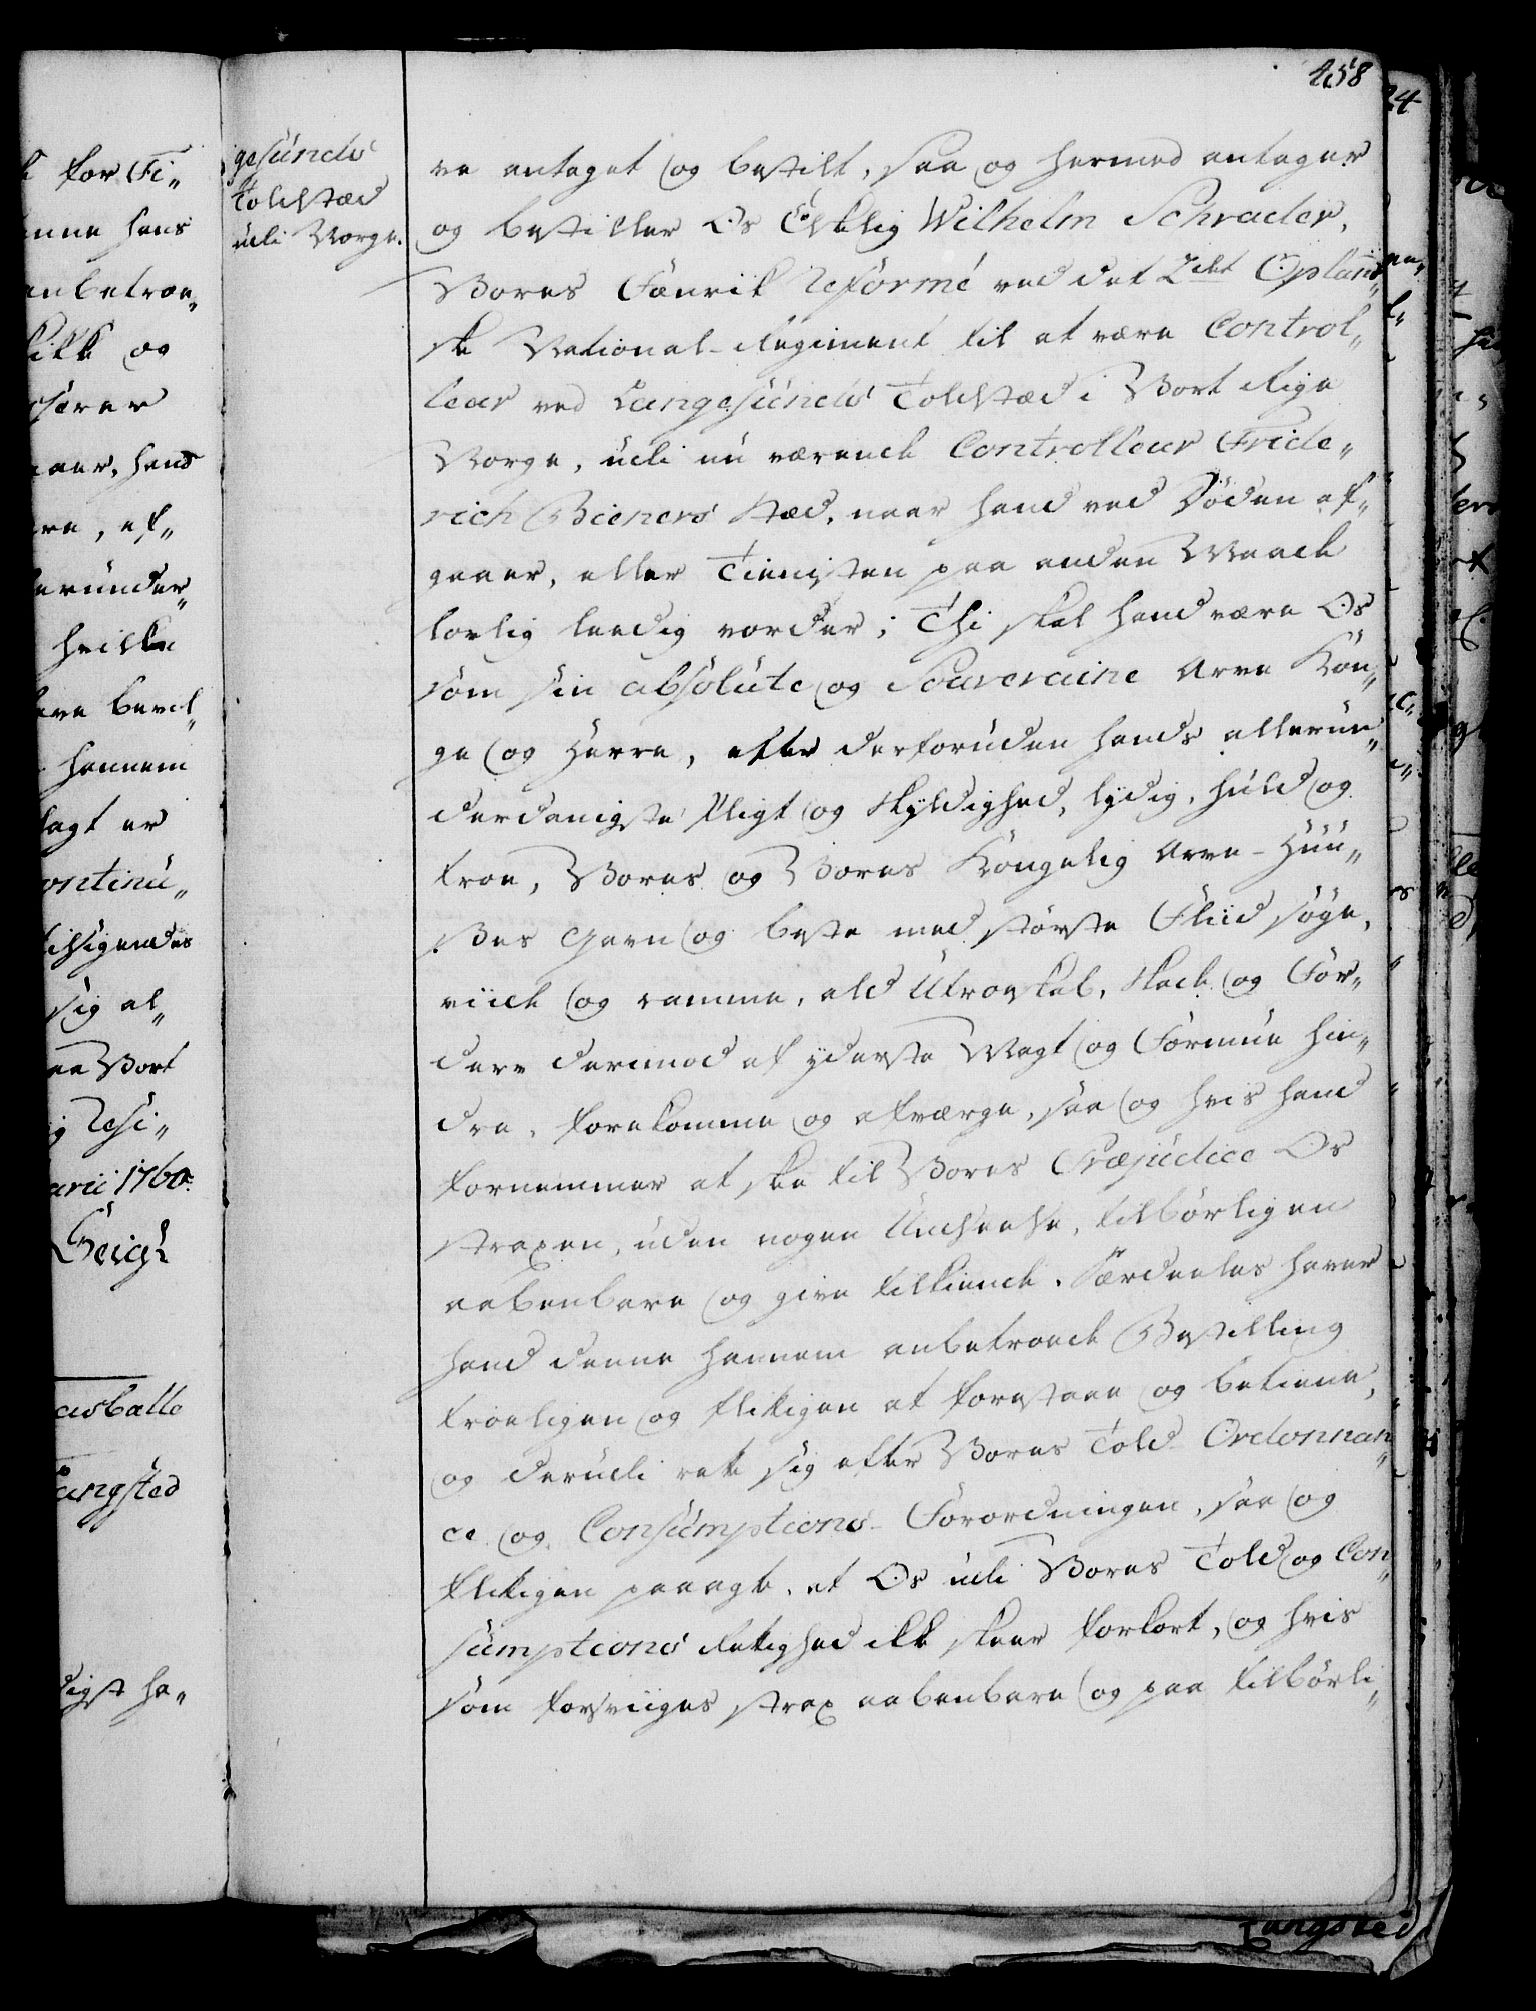 458
gesunds
Toldsted
udi Norge.
ve antaget og bestilt, saa og hermed antager
og bestiller Os Elskelig Wilhelm Schrader,
Vores Fænrik Reformé ved det 2det Opland„
ske National-Regiment til at være Control„
leur ved Langesunds Toldsted i Vort Rige
Norge, udi nu værende Controlleur Fride„
rich Bieners sted, naar hand ved Døden af„
gaaer, eller Tienisten paa anden Maade
lovlig leedig vorder; Thi skal hand være Os
som sin absolute og Souveraine Arve Kon„
ge og Herre, efter derforuden hands allerun„
derdanigste Pligt og Skyldighed, lydig, huld og
troe, Vores og Vores Kongelig Arve-Huu„
ses Gavn og beste med største Fliid søge,
viide og ramme, ald Utroeskab, Skade og For„
derv derimod af yderste Magt og Formue hin„
dre, forekomme og afværge, saa og hvis hand
fornemmer at skee til Vores Præjudice Os
straxen, uden nogen Undseelse, tilbørligen
aabenbare og give tilkiende. Særdeeles haver
hand denne hannem anbetroede Bestilling
troeligen og flitigen at forestaae og betiene,
og derudi rette sig efter Vores Told-Ordonnan„
ce og Consumptions-Forordningen, saa og
flitigen paaagte, at Os udi Vores Told og Con„
sumptions Rettighed ikke skeer forkort, og hvis
som forsviiges strax aabenbare og paa tilbørli„
for Fi„
hans
anbetroe„
og
hand
erunder„
hvilken
hannem
sagt er
ontinu„
tilsigendes
sig al„
Vort
Resi„
arii 1760.
Langsted
digst ha„
Langsted